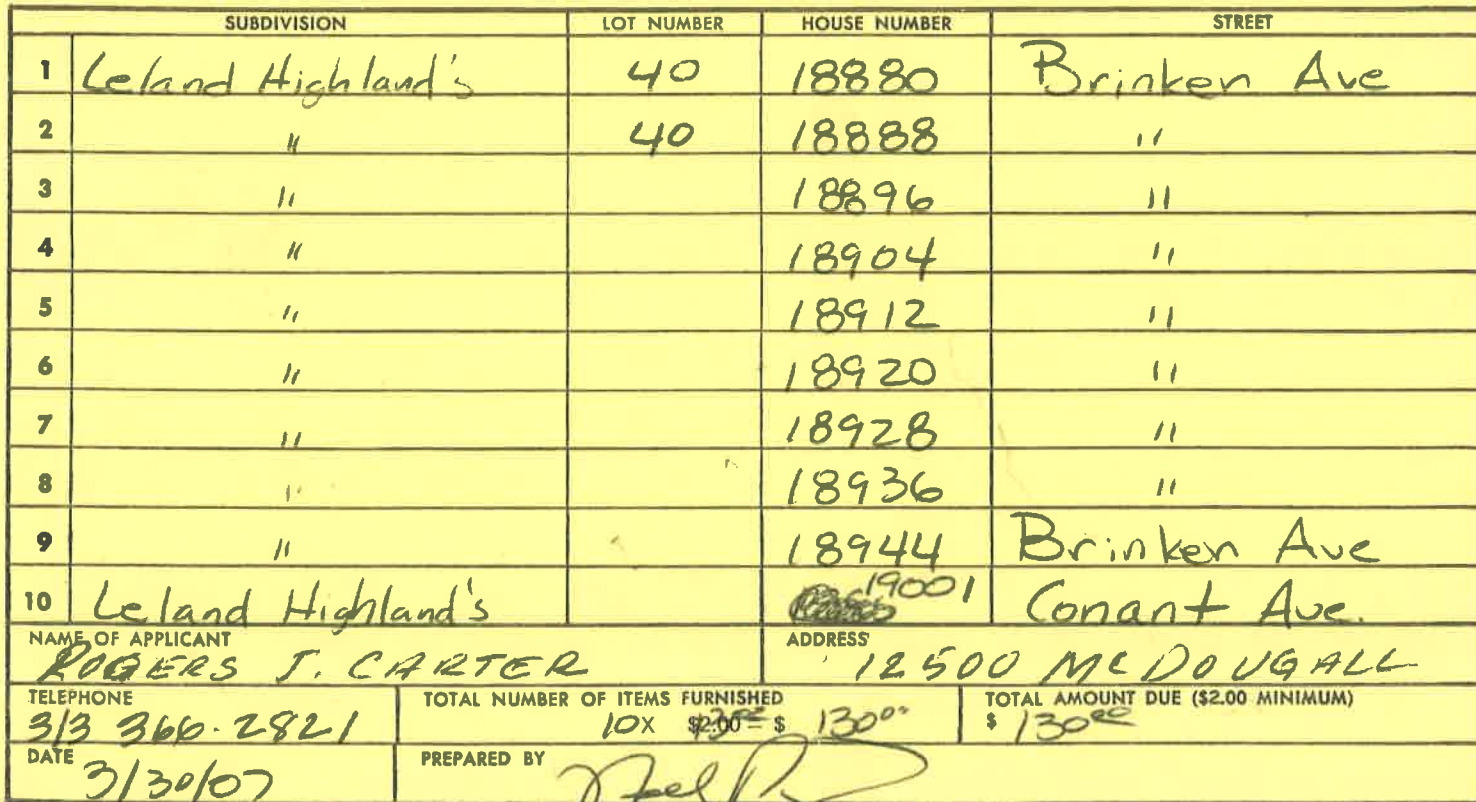 SUBDIVISION LOT NUMBER HOUSE NUMBER STREET
1 Leland Highland's 40 18880 Brinken Ave
2 " 40 18888 "
3 " 18896 "
4 " 18904 "
5 " 18912 "
6 " 18920 "
7 " 18928 "
8 " 18936 "
9 " 18944 Brinken Ave
10 Leland Highland's 19001 Conant Ave.
NAME OF APPLICANT ADDRESS
ROGERS J. CARTER 12500 MCDOUGALL
TELEPHONE TOTAL NUMBER OF ITEMS FURNISHED TOTAL AMOUNT DUE ($2.00 MINIMUM)
313 366-2821 10 X = $ 130.00 $ 130.00
DATE PREPARED BY
3/30/07